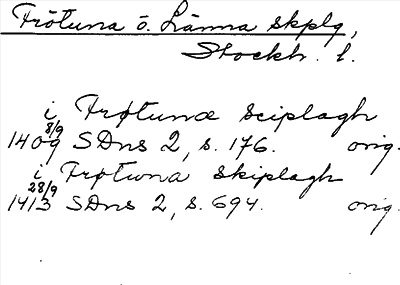 Frötuna o. Länna skplg,
Stockh. l.
i Frøtunæ sciplagh
8/9
1409 SDns 2, s. 176. orig.
i Frøtuna skiplagh
28/9
1413 SDns 2, s. 694. orig.